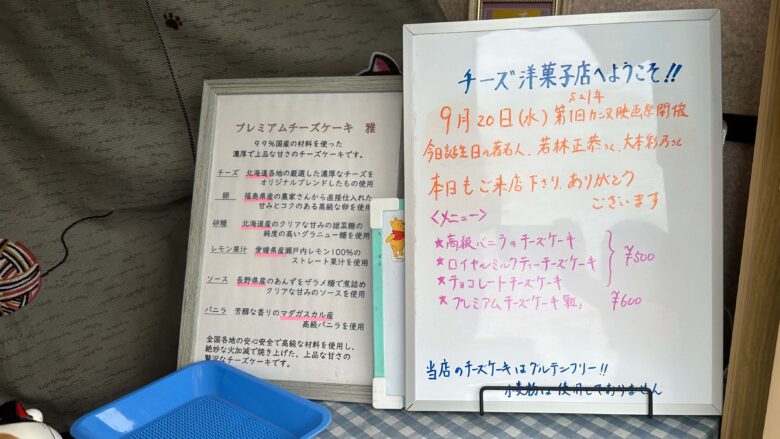 プレミアムチーズケーキ 雅
99%国産の材料を使った
濃厚で上品な甘さのチーズケーキです。
チーズ 北海道各地の厳選した濃厚なチーズを
オリジナルブレンドしたもの使用
卵 福島県産の農家さんから直接仕入れた
甘みとコクのある高級な卵を使用
砂糖 北海道産のクリアな甘みの甜菜糖の
純度の高いグラニュー糖を使用
レモン果汁 愛媛県産瀬戸内レモン100%の
ストレート果汁を使用
ソース 長野県産のあんずをザラメ糖で煮詰め
クリアな甘みのソースを使用
バニラ 芳醇な香りのマダガスカル産
高級バニラを使用
全国各地の安心安全で高級な材料を使用し、
絶妙な火加減で焼き上げた、上品な甘さの
贅沢なチーズケーキです。
チーズ洋菓子店へようこそ!!
S21年
9月20日(水) 第1回カンヌ映画祭開催
今日誕生日の著名人、若林正恭さん、大本彩乃さん
本日もご来店下さり、ありがとう
ございます
<メニュー>
★高級バニラのチーズケーキ
★ロイヤルミルクティーチーズケーキ ¥500
★チョコレートチーズケーキ
★プレミアムチーズケーキ雅, ¥600
当店のチーズケーキはグルテンフリー!!
小麦物は使用しておりません